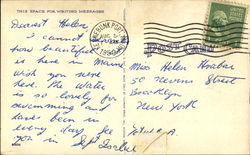 THIS SPACE FOR WRITING MESSAGES
Dearest Helen,
I cannot
how beautiful
is here in Maine
wish you were
here. The water
is so lovely for
swimming and
have been in
every day. See
you in Sept.
KENNEBUNK PORT
AUG
POST CARD
Miss Helen
50 Nevins Street
Brooklyn
New York